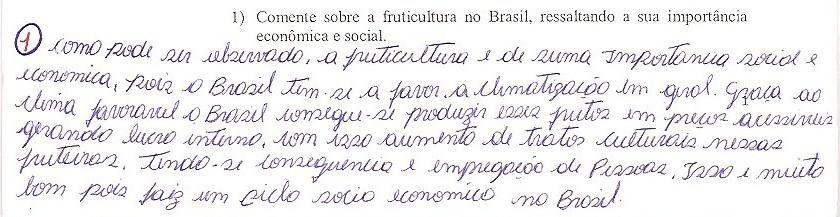 1) Comente sobre a fruticultura no Brasil, ressaltando a sua importância
econômica e social.
① Como pode ser observado, a fruticultura é de suma importancia social e
economica, pois o Brasil tem-se a favor a climatização em geral. Graça ao
clima favoravel o Brasil consegue-se produzir esses frutos em preços acessiveis
gerando lucro interno, com isso aumento de tratos culturais nessas
fruteiras. Tendo-se consequencia e empregação de Pessoas. Isso é muito
bom pois faiz um ciclo socio economico no Brasil.